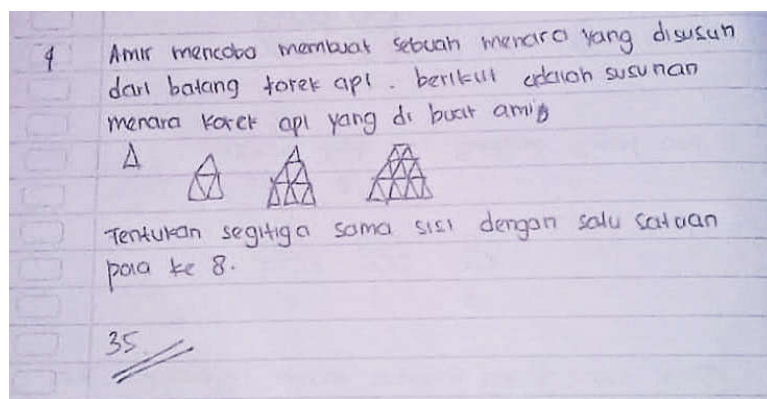 9 Amir mencoba membuat sebuah menara yang disusun
dari batang korek api. berikut adalah susunan
menara korek api yang di buat amir
Tentukan segitiga sama sisi dengan satu satuan
pola ke 8.
35